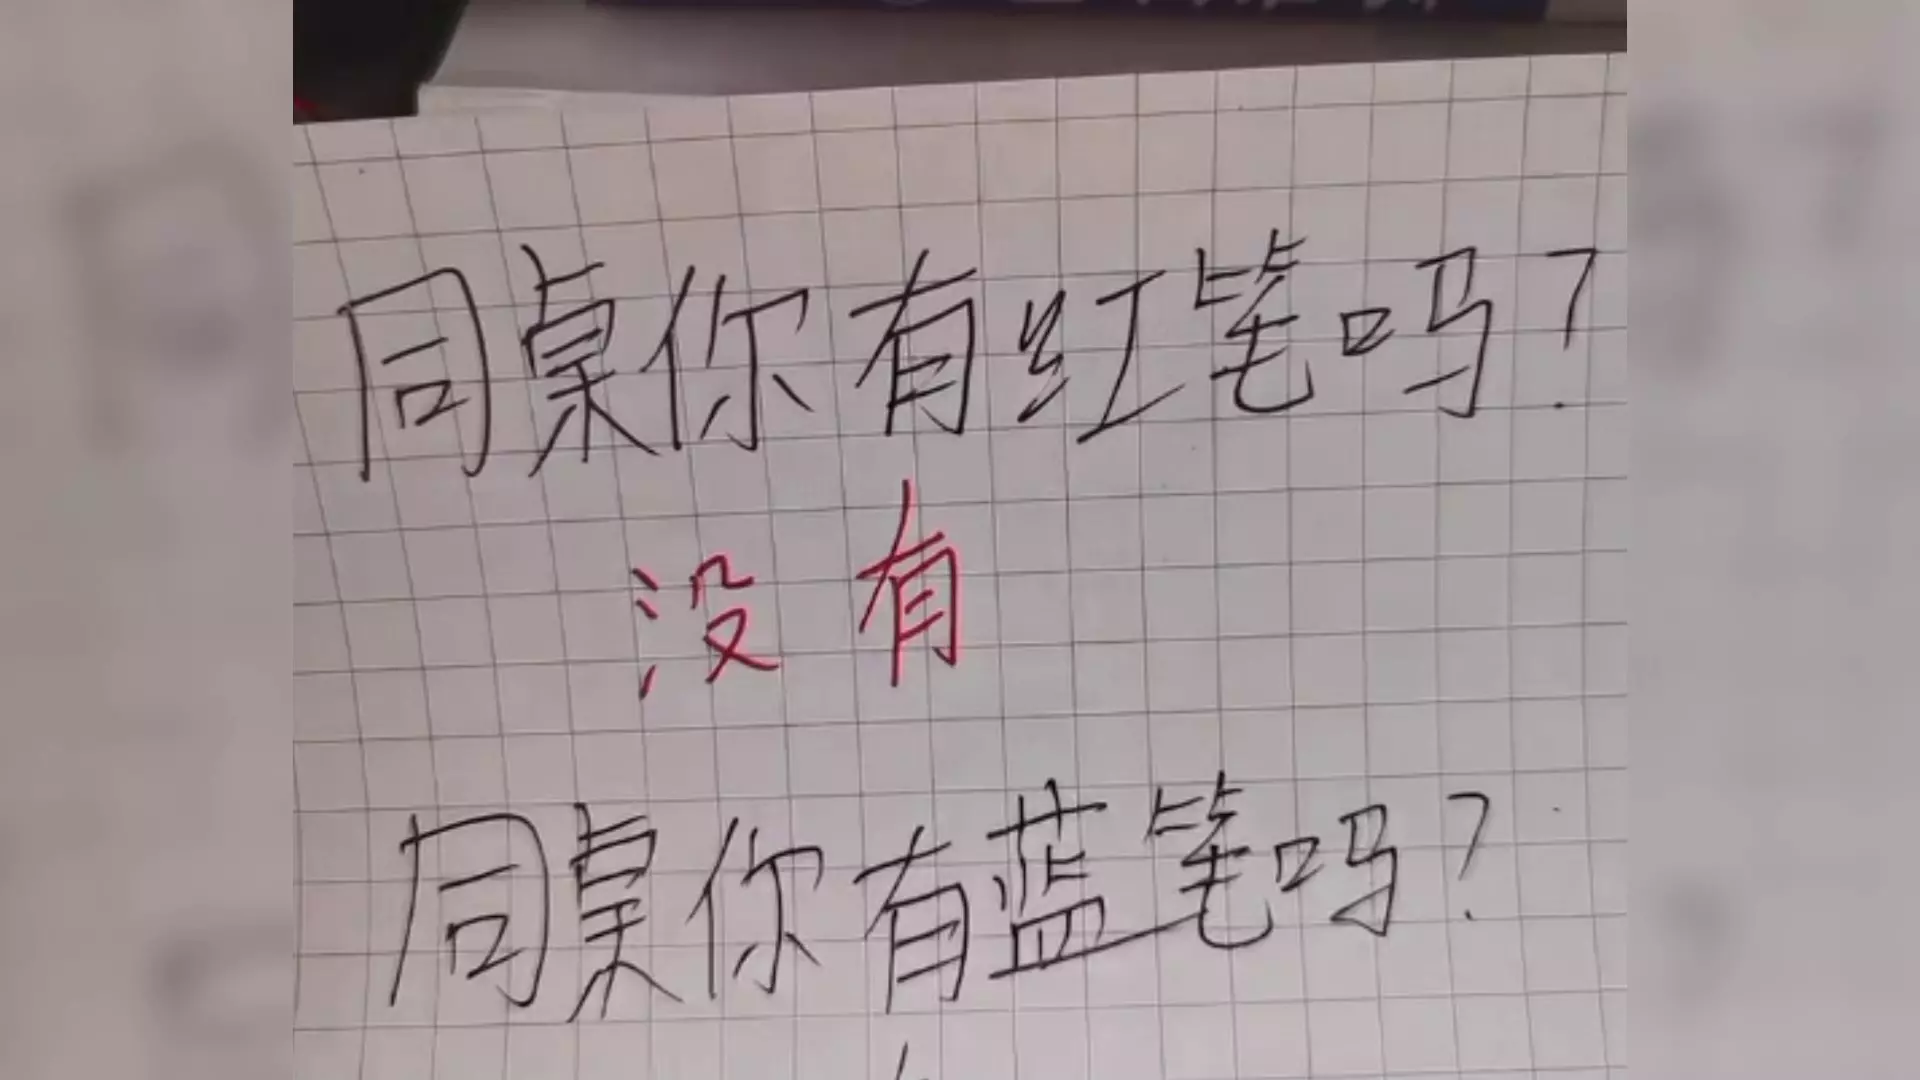 同桌你有红笔吗?
没有
同桌你有蓝笔吗?